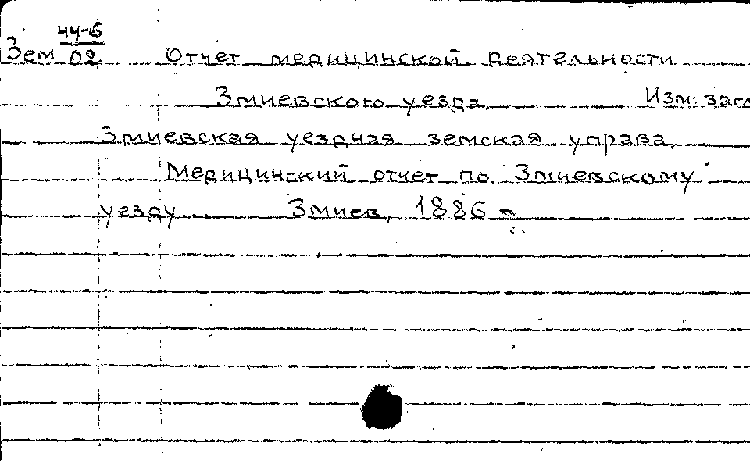 44-6
Зем 02 Отчет медицинской деятельности
Змиевского уезда Изм. загл
Змиевская уездная земская управа
Медицинский отчет по Змиевскому
уезду Змиев, 1886